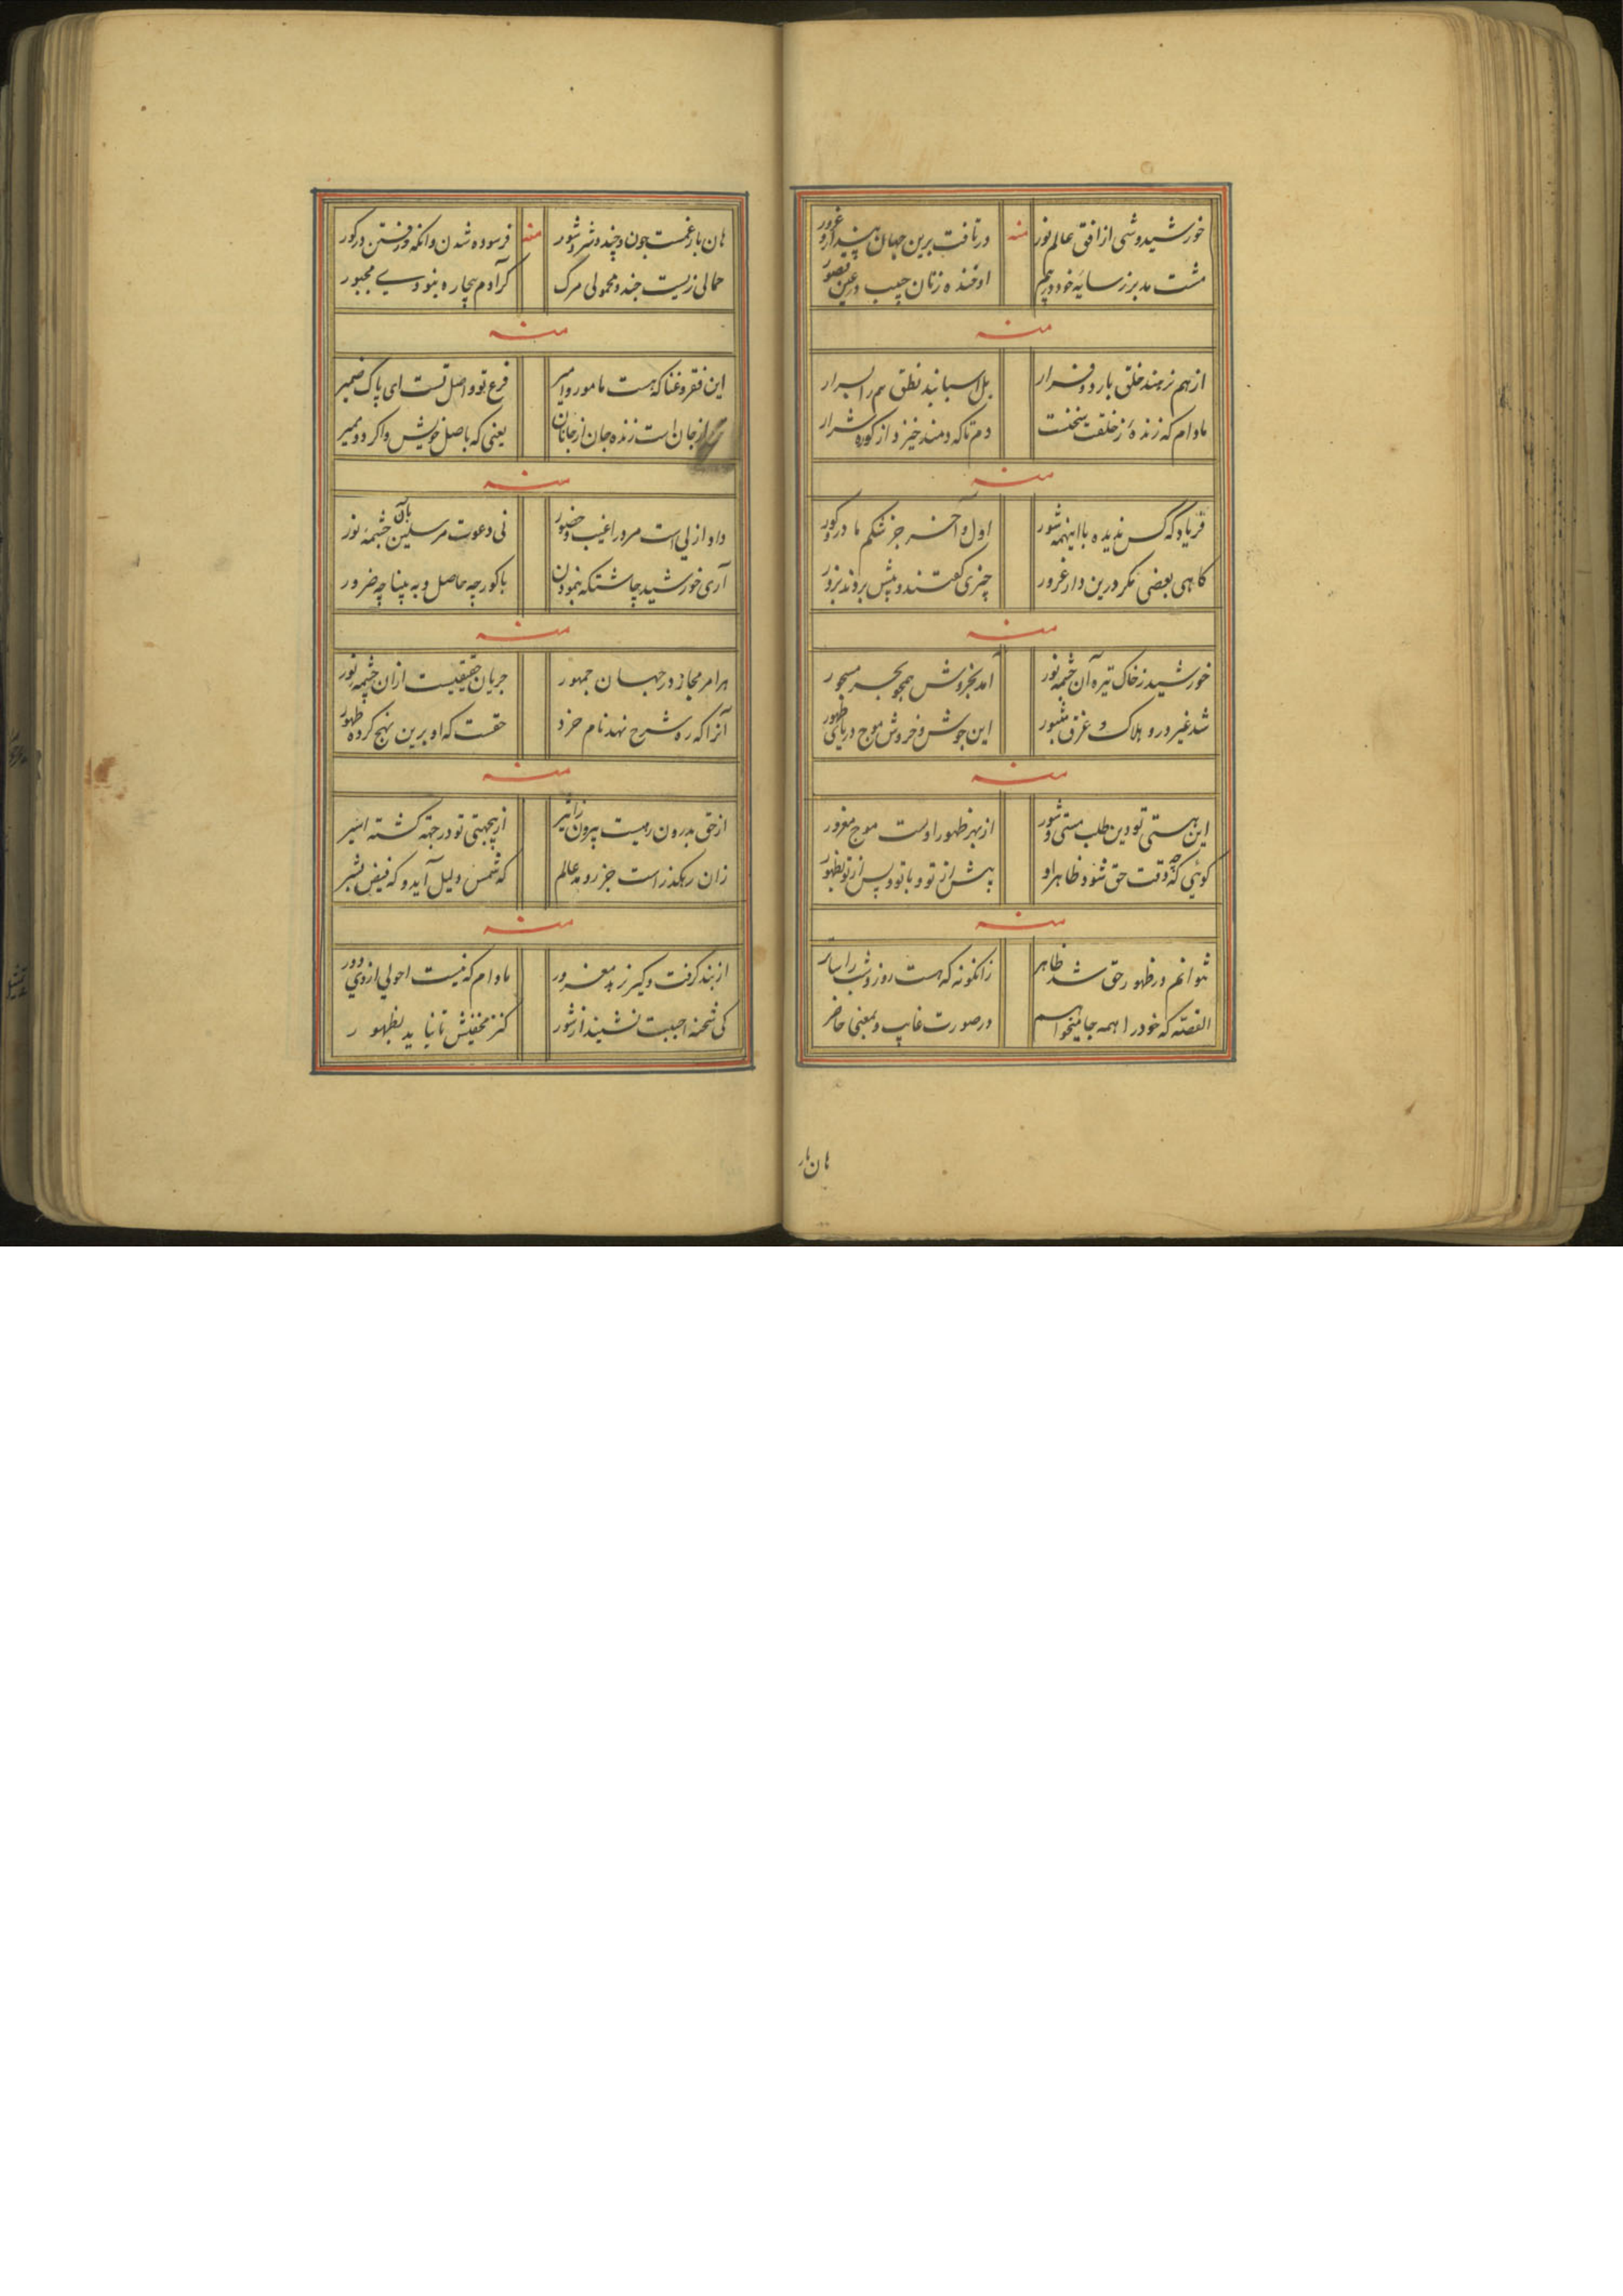 خورشید وشی از افق عالم نور
منه
در تافت برین جهان پندار و غرور
مشت مدبر ز سایه خود در هم
او خنده زنان چپ در عین قصور
منه
از هم نرهند خلق بارد و فرار
بل اسبابند نطق هم را اسرار
مادام که زندهٔ ز خلقت سخنت
دم تا که دمند خیزد از کوره شرار
منه
فریاد که کس ندیده با اینهمه شور
اول و آخر جز شکم مادر و کور
کاهی بعضی مکر درین دار غرور
چیزی گفتند و پیش بردند بزور
منه
خورشید ز خاک تیره آن چشمه نور
آمد بخروش همچو بحر مسجور
شد غیر درو هلاک و غرق مثبور
این جوش و خروش موج دریای ظهور
منه
این هستی تو دین طلب مستی و شور
از بهر ظهور اوست موج مغرور
کوئی که چه وقت حق شود ظاهر او
پیش از تو و با تو و پس از تو بظهور
منه
نتوانم در ظهور حق شد ظاهر
زانکونه که هست روز و شب را ساتر
القصه که خود را همه جا میخواهم
در صورت غایب و بمعنی حاضر
هان بار
هان بار غمست جون و چند و شر و شور
منه
فرسوده شدن وانکه و رفتن در کور
حمالی زیست چند و محمولی مرک
کر آدم بیچاره نبودی مجبور
منه
این فقر و غنا که هست مامور و امیر
فرع تو و اصل تست ای پاک ضمیر
از جان است زنده جان از جانان
یعنی که باصل خویش واکرد و بمیر
منه
داد ازلی است مرورا غیب و حضور
نی دعوت مرسلین بآن چشمه نور
آری خورشید چاشتکه بنمودن
با کور چه حاصل و به بینا چه ضرور
منه
هر امر مجاز در جهان جمهور
جریان حقیقیست ازان چشمه نور
آنرا که ره شرح نهد نام خرد
حقست که او برین نهج کرده ظهور
منه
از حق بدرون رهیست بیرون ز اثیر
از بیجهتی تو در جهة کشته اسیر
زان رهکذر است جزر و مد عالم
که شمس و لیل آید و که فیض بشیر
منه
از بند کرفت و کیر زید مغرور
مادام که نیست احولی از وی دور
کی شحنه احببت نشیند از شور
کنز مخفیش تا نیاید بظهور